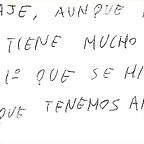 AJE, AUNQUE
TIENE MUCHO
1º QUE SE HI
QUE TENEMOS A